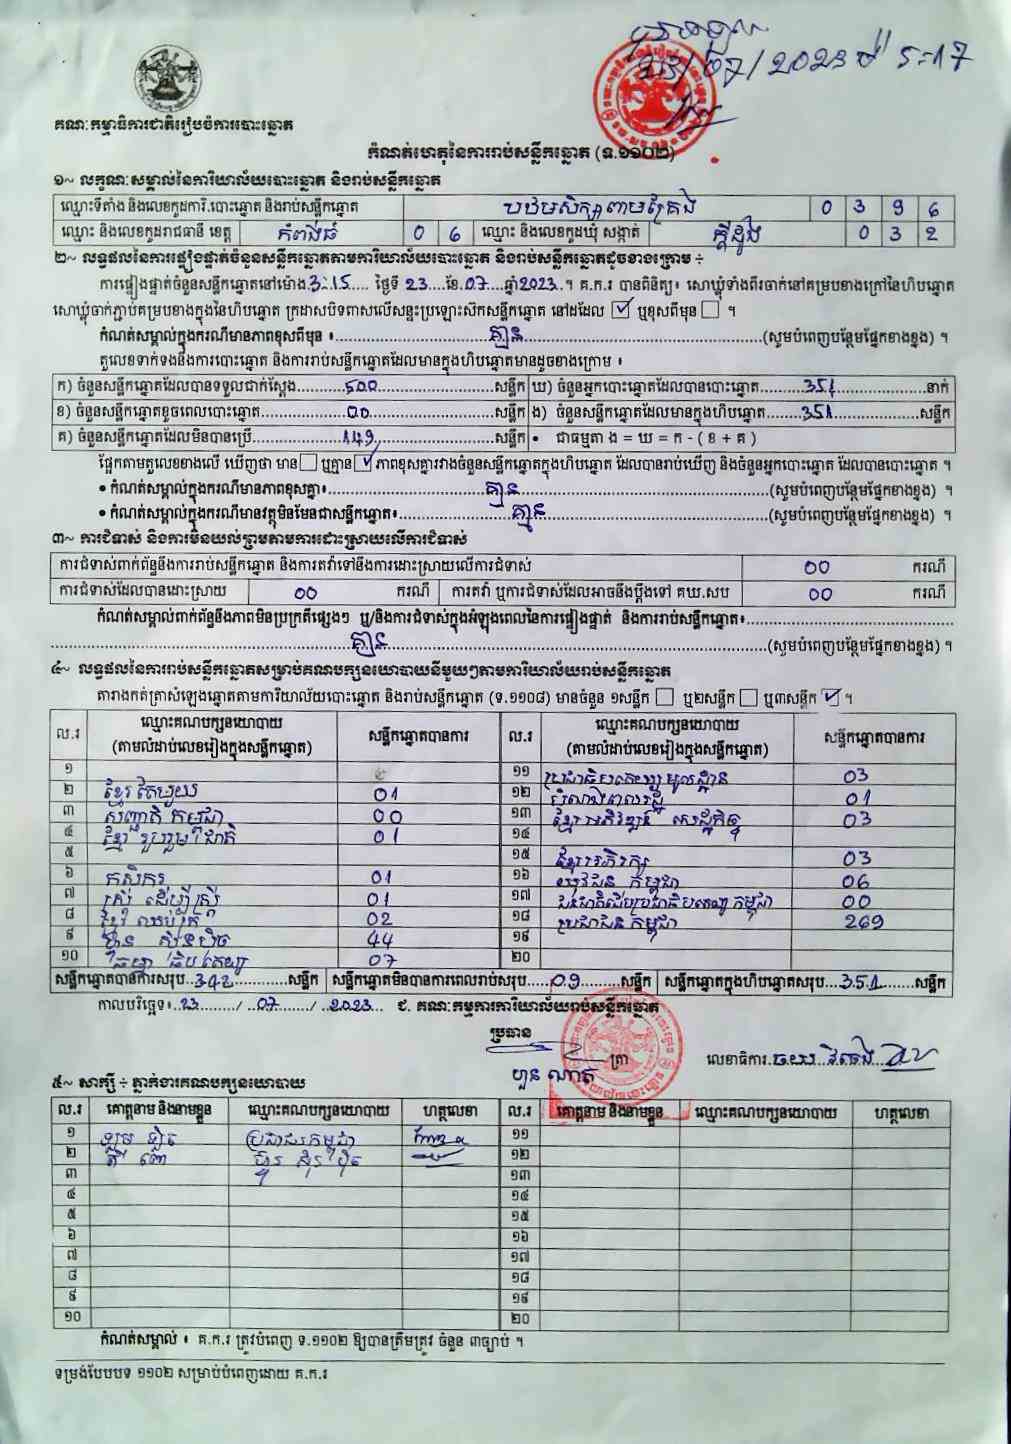 23/07/2023 ម៉ 5:17
គណៈកម្មាធិការជាតិរៀបចំការបោះឆ្នោត
កំណត់ហេតុនៃការរាប់សន្លឹកឆ្នោត (ទ.១១០២)
១~ លក្ខណៈសម្គាល់នៃការិយាល័យបោះឆ្នោត និងរាប់សន្លឹកឆ្នោត
ឈ្មោះទីតាំង និងលេខកូដការិ.បោះឆ្នោត និងរាប់សន្លឹកឆ្នោត បឋមសិក្សាពាមក្រែង 0 3 9 6
ឈ្មោះ និងលេខកូដរាជធានី ខេត្ត កំពង់ធំ 0 6 ឈ្មោះ និងលេខកូដឃុំ សង្កាត់ ក្ដីដូង 0 3 2
២~ លទ្ធផលនៃការផ្ទៀងផ្ទាត់ចំនួនសន្លឹកឆ្នោតតាមការិយាល័យបោះឆ្នោត និងរាប់សន្លឹកឆ្នោតដូចខាងក្រោម ÷
ការផ្ទៀងផ្ទាត់ចំនួនសន្លឹកឆ្នោតនៅម៉ោង 3:15 ថ្ងៃទី 23 ខែ 07 ឆ្នាំ 2023 ។ គ.ក.រ បានពិនិត្យ៖ សោឃ្លុំទាំងពីរចាក់នៅគម្របខាងក្រៅនៃហិបឆ្នោត
សោឃ្លុំចាក់ភ្ជាប់គម្របខាងក្នុងនៃហិបឆ្នោត ក្រដាសបិទពាសលើសន្ទះប្រឡោះស៊កសន្លឹកឆ្នោត នៅដដែល ☑ ឬខុសពីមុន ☐ ។
កំណត់សម្គាល់ក្នុងករណីមានភាពខុសពីមុន ៖ គ្មាន (សូមបំពេញបន្ថែមផ្នែកខាងខ្នង) ។
តួលេខទាក់ទងនឹងការបោះឆ្នោត និងការរាប់សន្លឹកឆ្នោតដែលមានក្នុងហិបឆ្នោតមានដូចខាងក្រោម ៖
ក) ចំនួនសន្លឹកឆ្នោតដែលបានទទួលជាក់ស្តែង 500 សន្លឹក ឃ) ចំនួនអ្នកបោះឆ្នោតដែលបានបោះឆ្នោត 351 នាក់
ខ) ចំនួនសន្លឹកឆ្នោតខូចពេលបោះឆ្នោត 00 សន្លឹក ង) ចំនួនសន្លឹកឆ្នោតដែលមានក្នុងហិបឆ្នោត 351 សន្លឹក
គ) ចំនួនសន្លឹកឆ្នោតដែលមិនបានប្រើ 149 សន្លឹក • ជាធម្មតា ង = ឃ = ក - ( ខ + គ )
ផ្អែកតាមតួលេខខាងលើ ឃើញថា មាន ☐ ឬគ្មាន ☑ ភាពខុសគ្នារវាងចំនួនសន្លឹកឆ្នោតក្នុងហិបឆ្នោត ដែលបានរាប់ឃើញ និងចំនួនអ្នកបោះឆ្នោត ដែលបានបោះឆ្នោត ។
• កំណត់សម្គាល់ក្នុងករណីមានភាពខុសគ្នា៖ គ្មាន (សូមបំពេញបន្ថែមផ្នែកខាងខ្នង) ។
• កំណត់សម្គាល់ក្នុងករណីមានវត្ថុមិនមែនជាសន្លឹកឆ្នោត៖ គ្មាន (សូមបំពេញបន្ថែមផ្នែកខាងខ្នង) ។
៣~ ការជំទាស់ និងការមិនយល់ព្រមតាមការដោះស្រាយលើការជំទាស់
ការជំទាស់ពាក់ព័ន្ធនឹងការរាប់សន្លឹកឆ្នោត និងការតវ៉ាទៅនឹងការដោះស្រាយលើការជំទាស់ 00 ករណី
ការជំទាស់ដែលបានដោះស្រាយ 00 ករណី ការតវ៉ា ឬការជំទាស់ដែលអាចនឹងប្តឹងទៅ គឃ.សប 00 ករណី
កំណត់សម្គាល់ពាក់ព័ន្ធនឹងភាពមិនប្រក្រតីផ្សេងៗ ឬ/និងការជំទាស់ក្នុងអំឡុងពេលនៃការផ្ទៀងផ្ទាត់ និងការរាប់សន្លឹកឆ្នោត៖
គ្មាន (សូមបំពេញបន្ថែមផ្នែកខាងខ្នង) ។
៤~ លទ្ធផលនៃការរាប់សន្លឹកឆ្នោតសម្រាប់គណបក្សនយោបាយនីមួយៗតាមការិយាល័យរាប់សន្លឹកឆ្នោត
តារាងកត់ត្រាសំឡេងឆ្នោតតាមការិយាល័យបោះឆ្នោត និងរាប់សន្លឹកឆ្នោត (ទ.១១០៨) មានចំនួន ១សន្លឹក ☐ ឬ២សន្លឹក ☐ ឬ៣សន្លឹក ☑ ។
ល.រ ឈ្មោះគណបក្សនយោបាយ (តាមលំដាប់លេខរៀងក្នុងសន្លឹកឆ្នោត) សន្លឹកឆ្នោតបានការ ល.រ ឈ្មោះគណបក្សនយោបាយ (តាមលំដាប់លេខរៀងក្នុងសន្លឹកឆ្នោត) សន្លឹកឆ្នោតបានការ
១ ១១ ប្រជាធិបតេយ្យមូលដ្ឋាន 03
២ ខ្មែរតែមួយ 01 ១២ 01
៣ សញ្ជាតិកម្ពុជា 00 ១៣ ខ្មែរអភិវឌ្ឍន៍ សេដ្ឋកិច្ច 03
៤ ខ្មែររួបរួមជាតិ 01 ១៤
៥ ១៥ ខ្មែរអភិរក្ស 03
៦ កសិករ 01 ១៦ យុវជនកម្ពុជា 06
៧ ស្រ្តី ដើម្បីស្ត្រី 01 ១៧ ជនជាតិដើមប្រជាធិបតេយ្យកម្ពុជា 00
៨ ខ្មែរឈប់ក្រ 02 ១៨ ប្រជាជនកម្ពុជា 269
៩ ហ៊្វុនស៊ិនប៉ិច 44 ១៩
១០ ធម្មាធិបតេយ្យ 07 ២០
សន្លឹកឆ្នោតបានការសរុប 342 សន្លឹក សន្លឹកឆ្នោតមិនបានការពេលរាប់សរុប 09 សន្លឹក សន្លឹកឆ្នោតក្នុងហិបឆ្នោតសរុប 351 សន្លឹក
កាលបរិច្ឆេទ៖ 23 / 07 / 2023 ជ. គណៈកម្មការការិយាល័យរាប់សន្លឹកឆ្នោត
ប្រធាន
ត្រា លេខាធិការ
ហួន ណាត
៥~ សាក្សី ÷ ភ្នាក់ងារគណបក្សនយោបាយ
ល.រ គោត្តនាម និងនាមខ្លួន ឈ្មោះគណបក្សនយោបាយ ហត្ថលេខា ល.រ គោត្តនាម និងនាមខ្លួន ឈ្មោះគណបក្សនយោបាយ ហត្ថលេខា
១ ប្រជាជនកម្ពុជា ១១
២ ហ៊្វុនស៊ិនប៉ិច ១២
៣ ១៣
៤ ១៤
៥ ១៥
៦ ១៦
៧ ១៧
៨ ១៨
៩ ១៩
១០ ២០
កំណត់សម្គាល់ ៖ គ.ក.រ ត្រូវបំពេញ ទ.១១០២ ឱ្យបានត្រឹមត្រូវ ចំនួន ៣ច្បាប់ ។
ទម្រង់បែបបទ ១១០២ សម្រាប់បំពេញដោយ គ.ក.រ